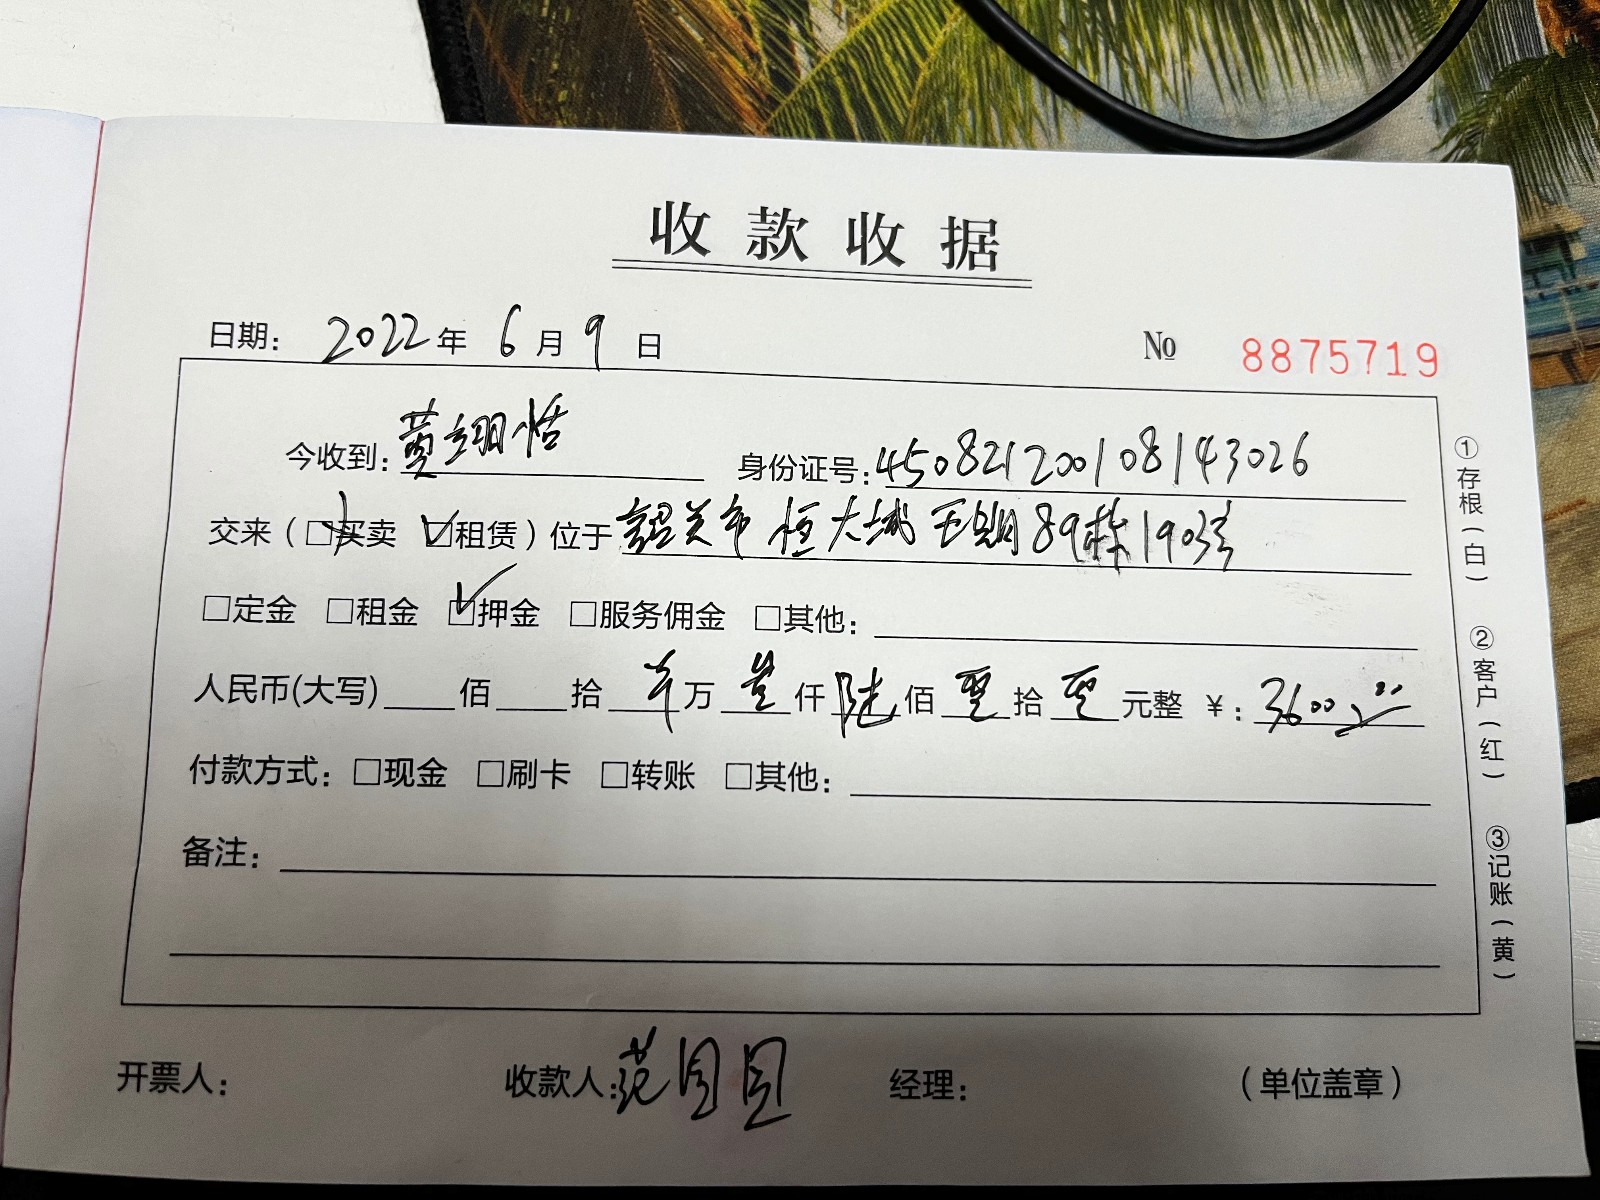 收款收据
日期: 2022年 6月9日 № 8875719
今收到: 黄翊恬 身份证号: 450821200108143026
交来(□买卖 ☑租赁)位于韶关市恒大城五期89栋1903号
□定金 □租金 ☑押金 □服务佣金 □其他:
人民币(大写) 佰 拾 万 仟陆佰零拾零元整 ¥: 3600.00
付款方式: □现金 □刷卡 □转账 □其他:
备注:
开票人: 收款人: 范 经理: (单位盖章)
①存根(白)
②客户(红)
③记账(黄)